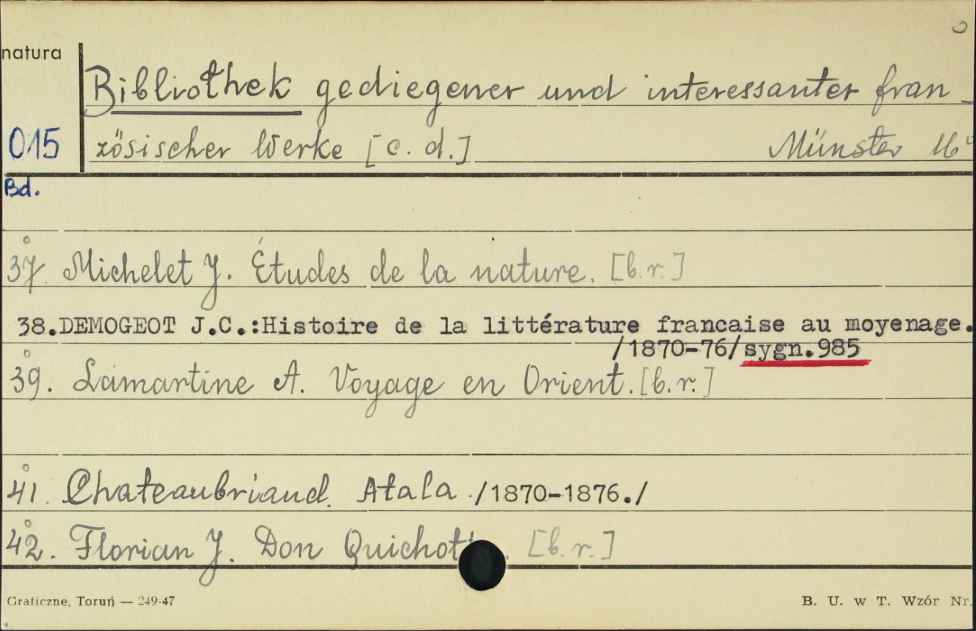 natura
Bibliothek gediegener und interessanter fran-
015 zösischer Werke [c. d.] Münster 16°
Bd.
37. Michelet J. Études de la nature. [b.r.]
38.DEMOGEOT J.C.:Histoire de la littérature francaise au moyenage.
/1870-76/sygn.985
39. Lamartine A. Voyage en Orient. [b.r.]
41. Chateaubriand. Atala ./1870-1876./
42. Florian J. Don Quichott . [b.r.]
Graficzne, Toruń — 249-47 B. U. w T. Wzór Nr.